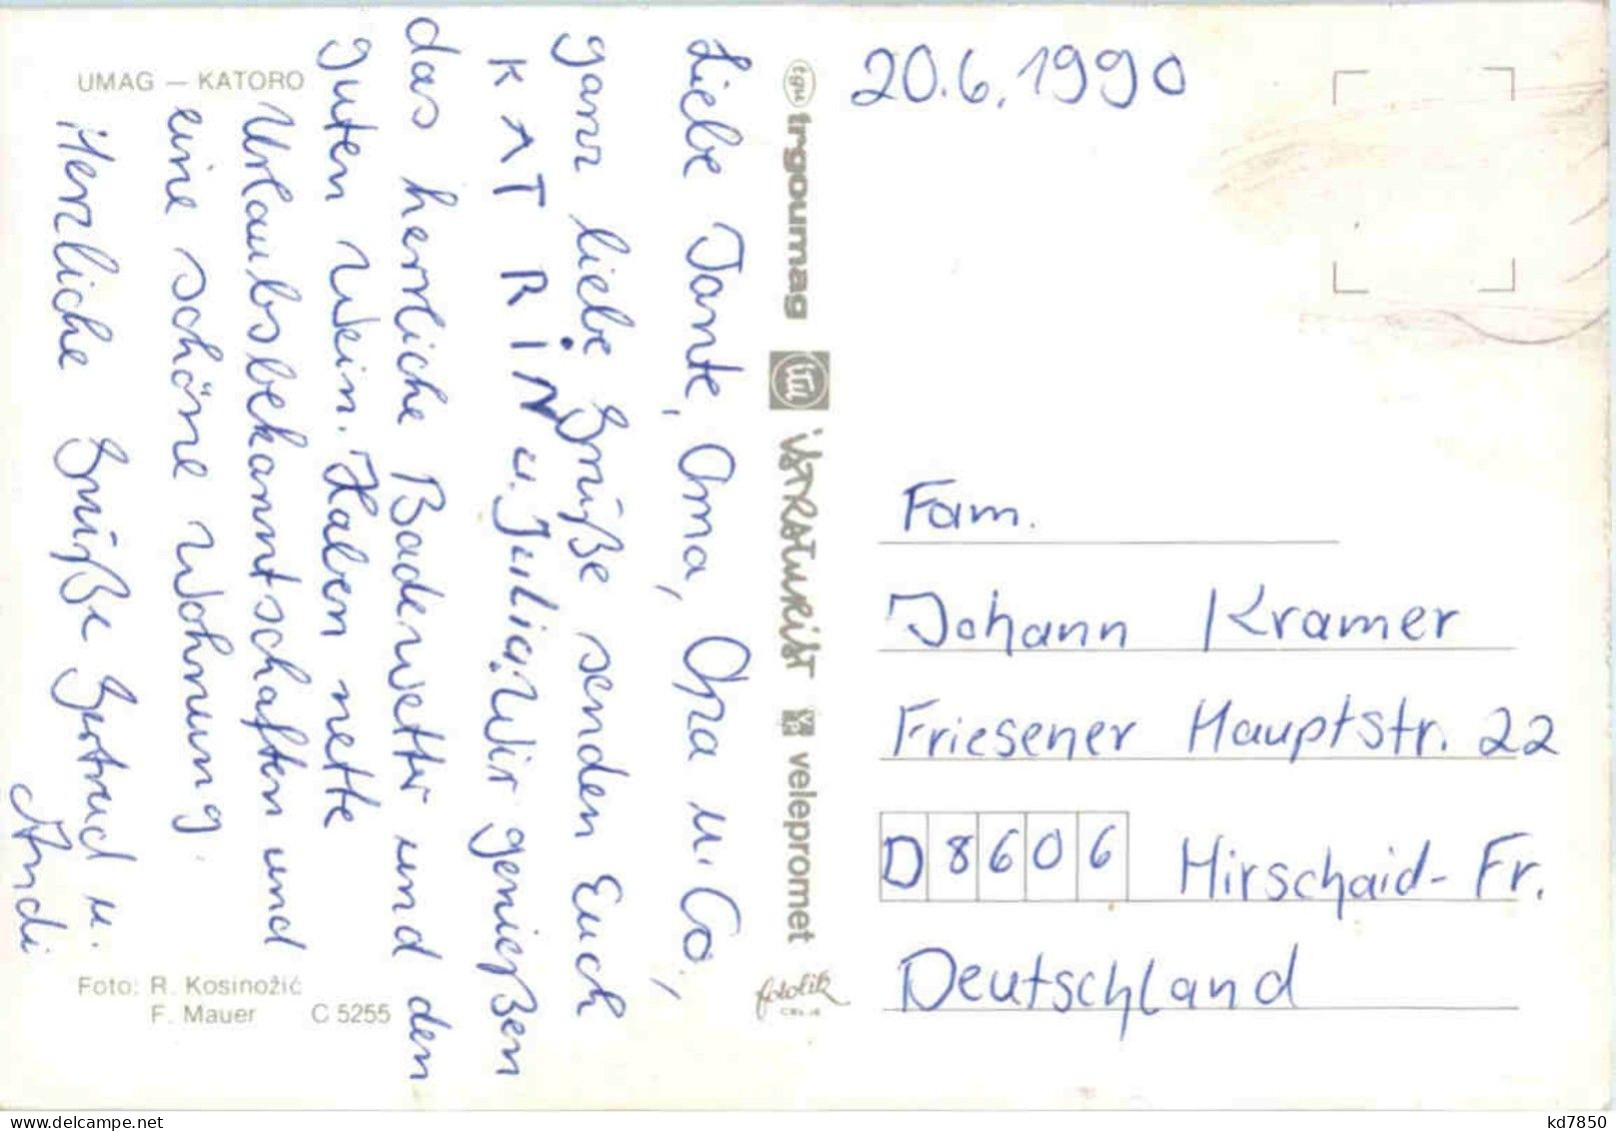 UMAG — KATORO
Liebe Tante, Oma, Opa u. Co.,
ganz liebe Grüße senden Euch
KATRIN u. Julia. Wir genießen
das herrliche Badewetter und den
guten Wein. Haben nette
Urlaubsbekanntschaften und
eine schöne Wohnung.
Herzliche Grüße Gertrud u.
Andi
Foto: R. Kosinožić
F. Mauer C 5255
trgoumag
ISTRATURIST
velepromet
fotolik
20.6.1990
Fam.
Johann Kramer
Friesener Hauptstr. 22
D 8606 Hirschaid-Fr.
Deutschland
www.delcampe.net
kd7850